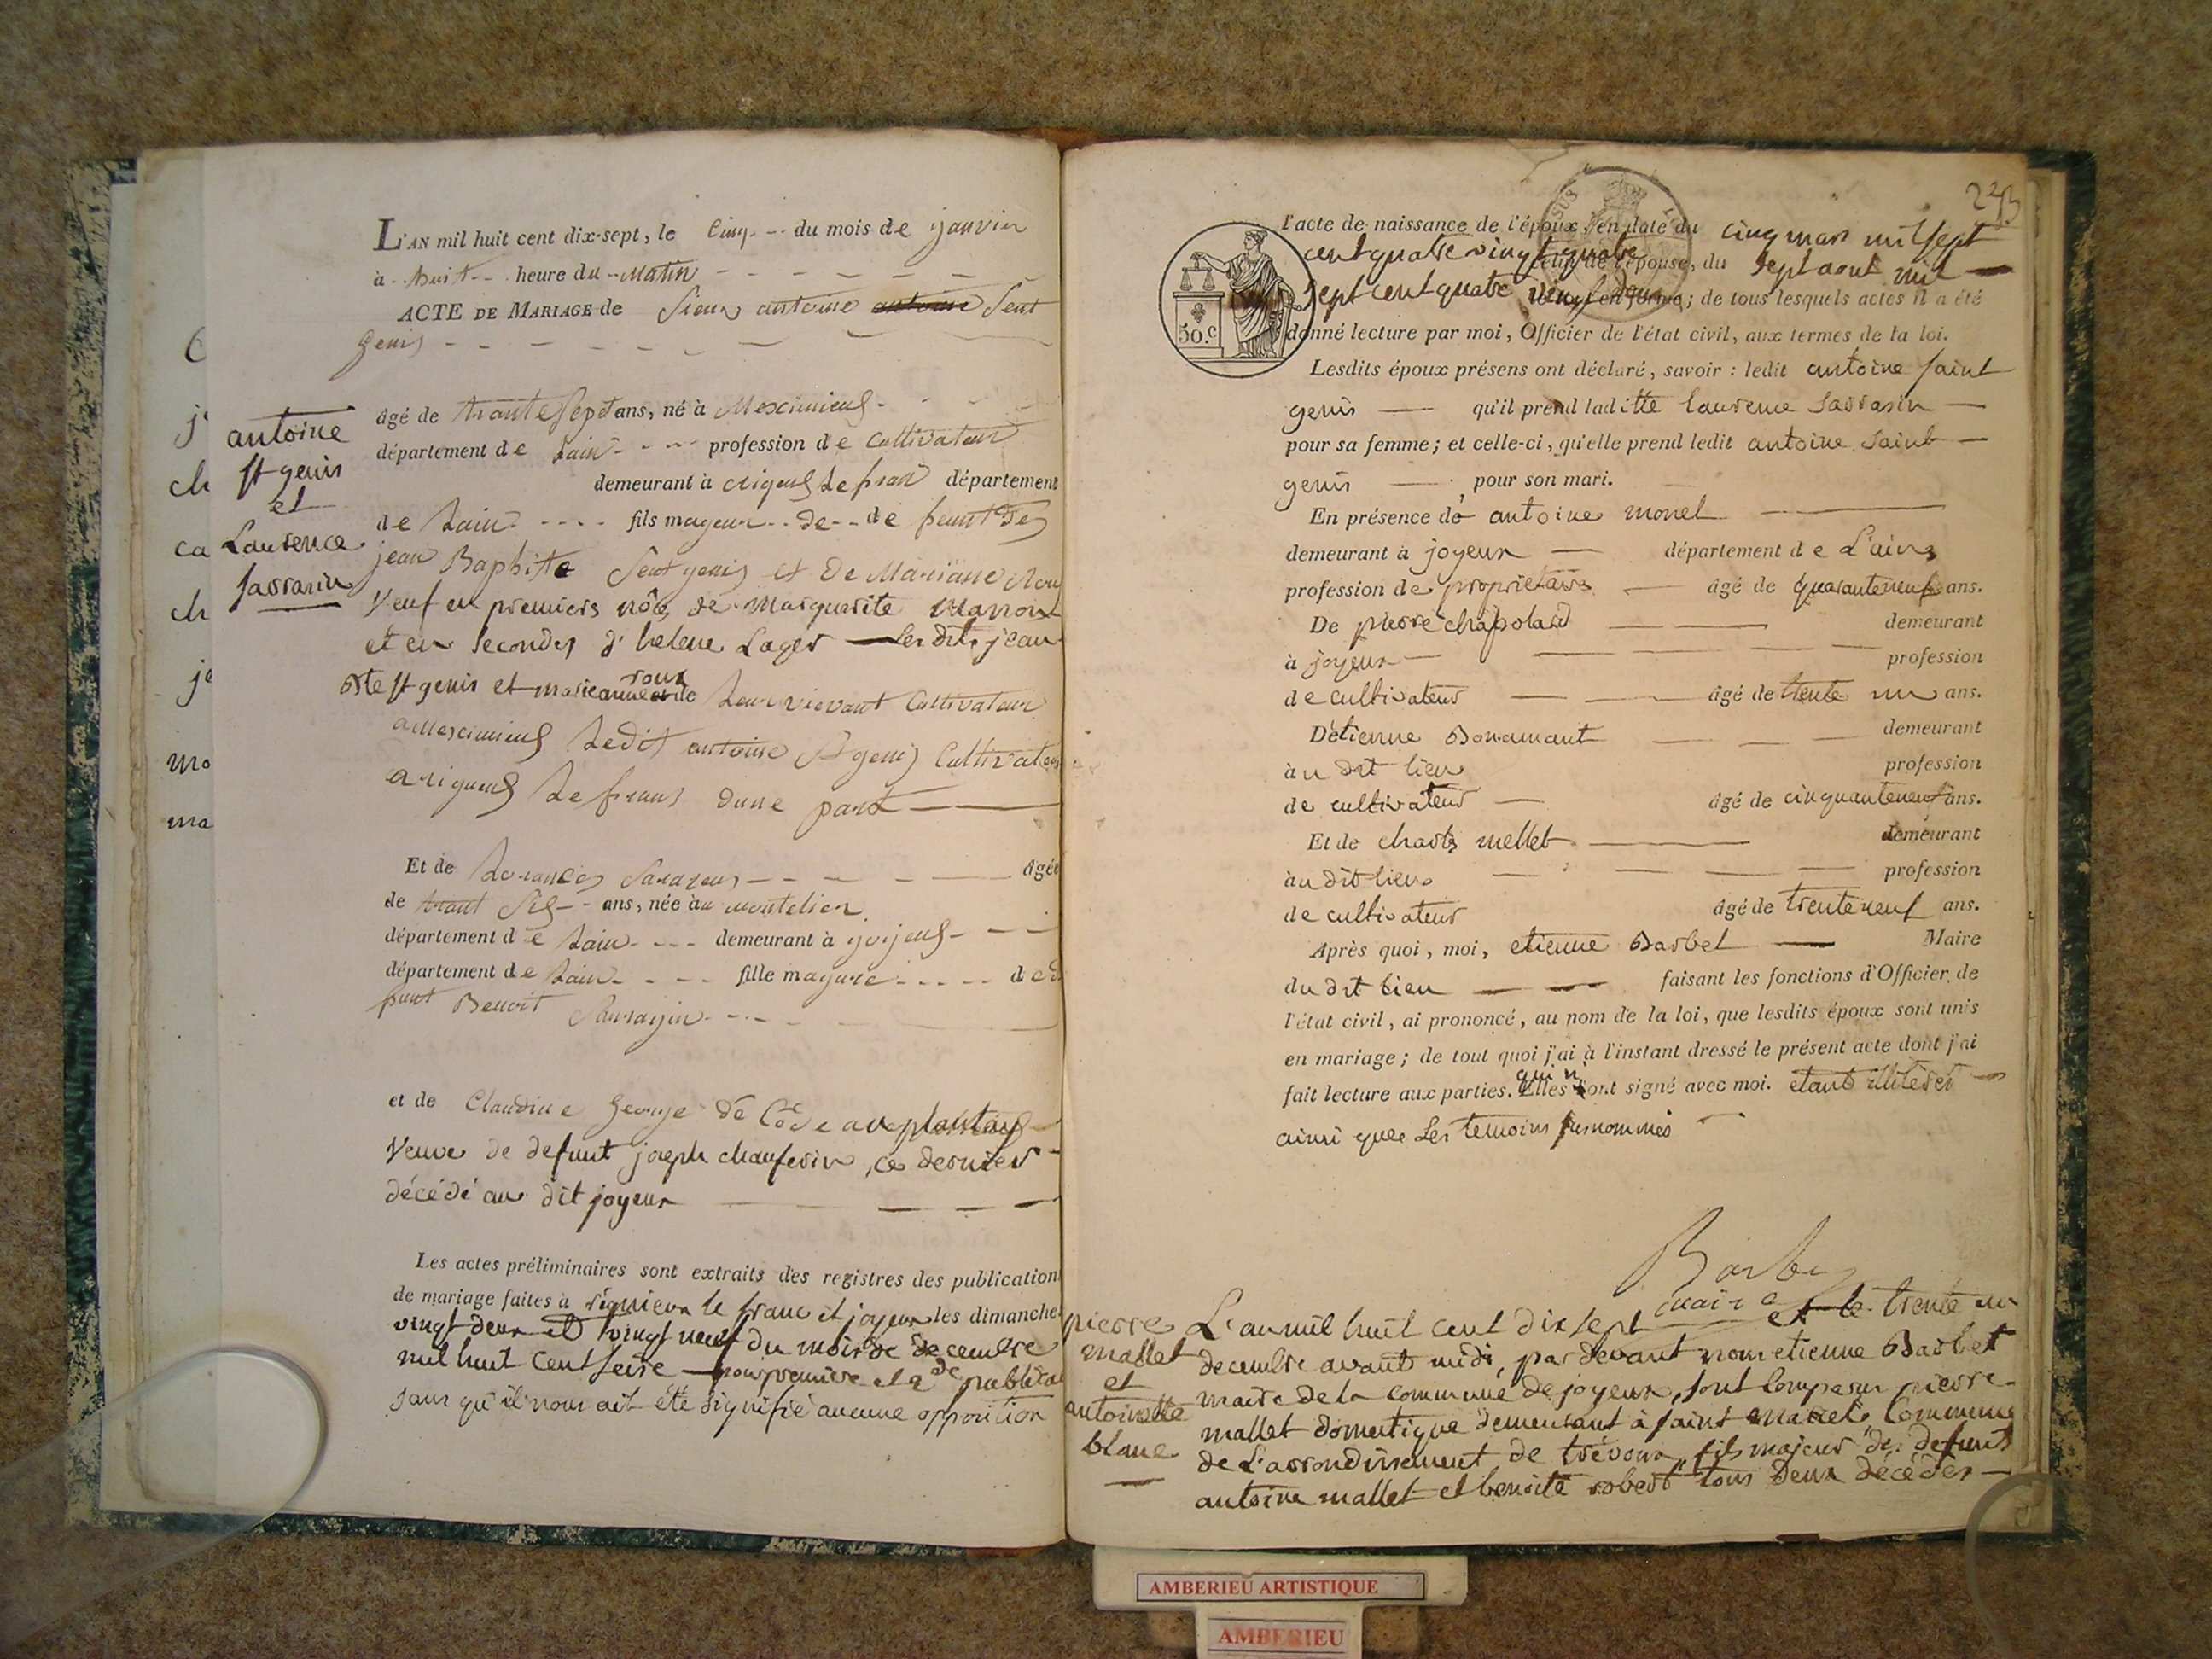 L'AN mil huit cent dix-sept, le Cinq du mois de janvier
à huit heure du Matin
ACTE DE MARIAGE de Sieur antoine antoine Sent
Genis
antoine
St genis
et
Laurence
Sarrasin
âgé de trante Sept ans, né à Meximieux
département de Lain profession de Cultivateur
demeurant à Le franc département
de Lain fils mageur de de funt De
jean Baptiste Sent genis et De Mariane
Veuf en premiers nôce de Marguerite
et en secondes d'helene Lager Les dits jean
Bte St genis et marieanne roux de Leur vievant Cultivateur
a Leximieux Ledit antoine St genis Cultivateur
Le franc dune part
Et de Sarazin âgée
de trant Six ans, née au montelier
département de Lain demeurant à joyeux
département de Lain fille mageure de de
funt Benoit Sarrazin
et de Claudine George décédé au plantay
Veuve de defunt joseph chanferin, ce dernier
décédé au dit joyeux
Les actes préliminaires sont extraits des registres des publication
de mariage faites à rignieux le franc et joyeux les dimanche
vingt deux et vingt neuf du mois de decembre
mil huit cent seize pour première et 2de publica
sans qu'il nous ait été signifié aucune opposition
233
50.c
l'acte de naissance de l'époux, en date du cinq mars mil sept
cent quatre vingt quatre celui de l'épouse, du sept aout mil
sept cent quatre vingt deux en forme; de tous lesquels actes il a été
donné lecture par moi, Officier de l'état civil, aux termes de la loi.
Lesdits époux présens ont déclaré, savoir : ledit antoine saint
genis qu'il prend laditte laurence sarrasin
pour sa femme; et celle-ci, qu'elle prend ledit antoine saint
genis pour son mari.
En présence de antoine monel
demeurant à joyeux département de L'ain
profession de proprietaire âgé de quaranteneuf ans.
De pierre chapolard demeurant
à joyeux profession
de cultivateur âgé de trente un ans.
D'étienne Bonamant demeurant
au dit lieu profession
de cultivateur âgé de cinquanteneuf ans.
Et de charles mellet demeurant
au dit lieu profession
de cultivateur âgé de trente neuf ans.
Après quoi, moi, etienne Barbet Maire
du dit lieu faisant les fonctions d'Officier de
l'état civil, ai prononcé, au nom de la loi, que lesdits époux sont unis
en mariage; de tout quoi j'ai à l'instant dressé le présent acte dont j'ai
fait lecture aux parties. Elles qui n'ont signé avec moi. etant illiterés
ainsi que Les temoins susnommés
Barbet
maire
pierre
mallet
et
antoinette
blanc
L'an mil huit cent dix sept et le trente un
decembre avant midi, par devant nous etienne Barbet
maire de la commune de joyeux, sont comparus pierre
mallet domestique demeurant à saint marcel, commune
de L'arrondissement de trévoux, fils majeur de defunts
antoine mallet et benoite robert tous deux décédés
AMBERIEU ARTISTIQUE
AMBERIEU